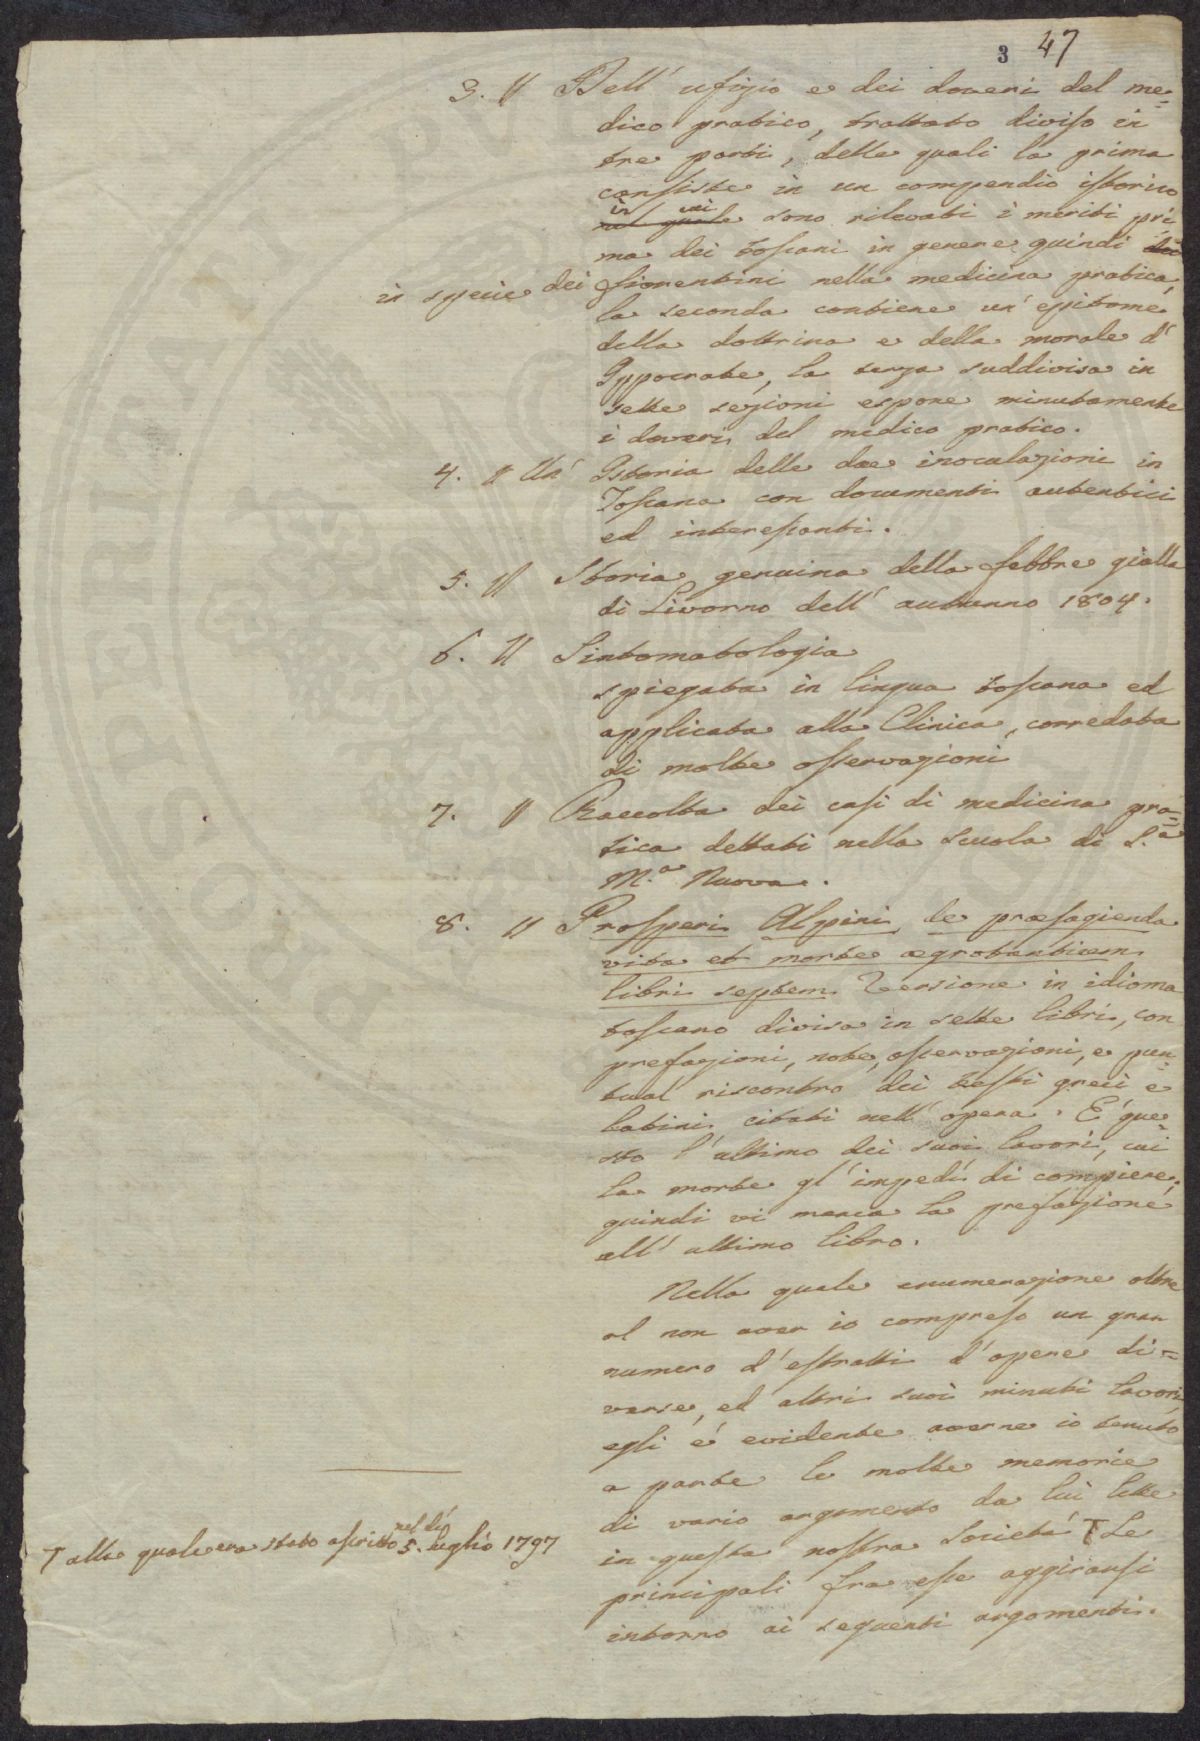 3 47
3. " Dell' ufizio e dei doveri del me=
dico pratico, trattato diviso in
tre parti, delle quali la prima
consiste in un compendio istorico
in cui
nel quale sono rilevati i meriti pri
ma dei toscani in genere quindi dei
in specie dei fiorentini nella medicina pratica,
la seconda contiene un' epitome
della dottrina e della morale d'
Ippocrate, la terza suddivisa in
sette sezioni espone minutamente
i doveri del medico pratico.
4. " Un' Istoria delle due inoculazioni in
Toscana con documenti autentici
ed interessanti.
5. " Storia genuina della febbre gialla
di Livorno dell' autunno 1804.
6. " Sintomatologia
spiegata in lingua toscana ed
applicata alla Clinica, corredata
di molte osservazioni
7. " Raccolta dei casi di medicina pra=
tica dettati nella scuola di S.a
M.a Nuova.
8. " Prosperi Alpini de præsagienda
vita et morte ægrotantium
libri septem. Versione in idioma
toscano divisa in sette libri, con
prefazioni, note, osservazioni, e pun=
tual riscontro dei testi greci e
latini citati nell' opera. E' que=
sto l' ultimo dei suoi lavori, cui
la morte gl' impedì di compiere,
quindi vi manca la prefazione
all' ultimo libro.
Nella quale enumerazione oltre
al non aver io compreso un gran
numero d' estratti d' opere di=
verse, ed altri suoi minuti lavori,
egli é evidente averne io tenuto
a parte le molte memorie
di vario argomento da lui lette
in questa nostra Società T Le
principali fra esse aggiransi
intorno ai seguenti argomenti.
nel dì
T alla quale era stato ascritto 5. luglio 1797